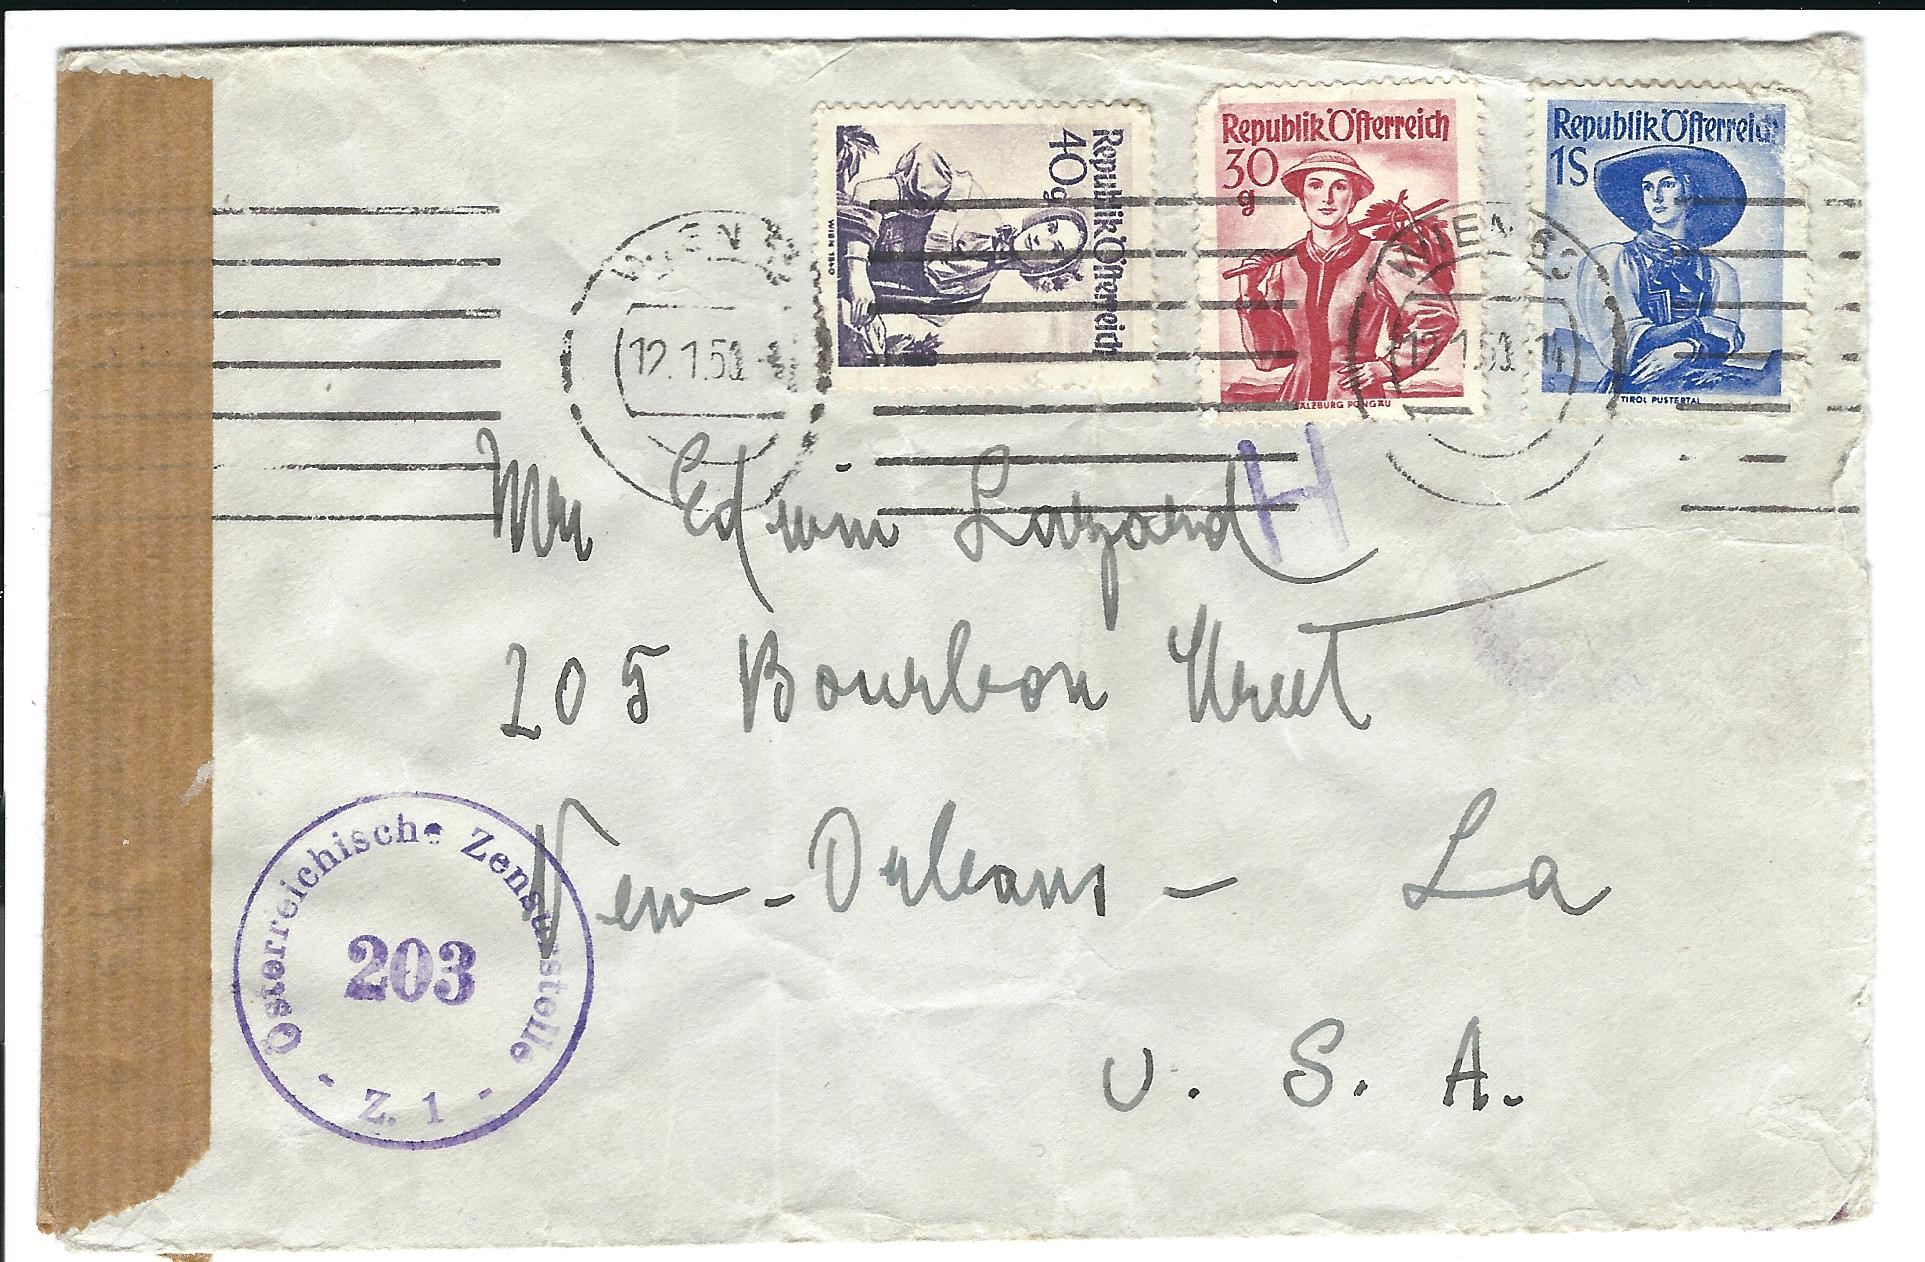 Republik Österreich
40g
WIEN 1840
Republik Österreich
30
g
SALZBURG PONGAU
Republik Österreich
1S
TIROL PUSTERTAL
WIEN
12.1.50
WIEN
12.1.50 14
H
Mr Edwin Lazard
205 Bourbon Street
New-Orleans - La
U. S. A.
Österreichische Zensurstelle
203
- Z. 1 -